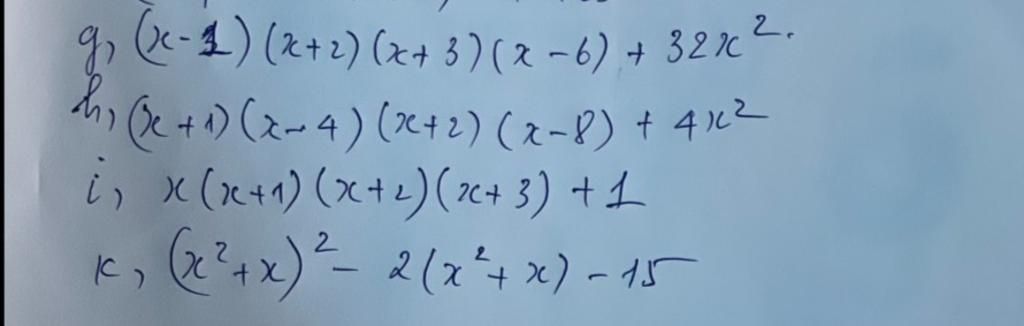 g, (x-1)(x+2)(x+3)(x-6) + 32x².
h, (x+1)(x-4)(x+2)(x-8) + 4x²
i, x(x+1)(x+2)(x+3) + 1
k, (x²+x)² - 2(x²+x) - 15